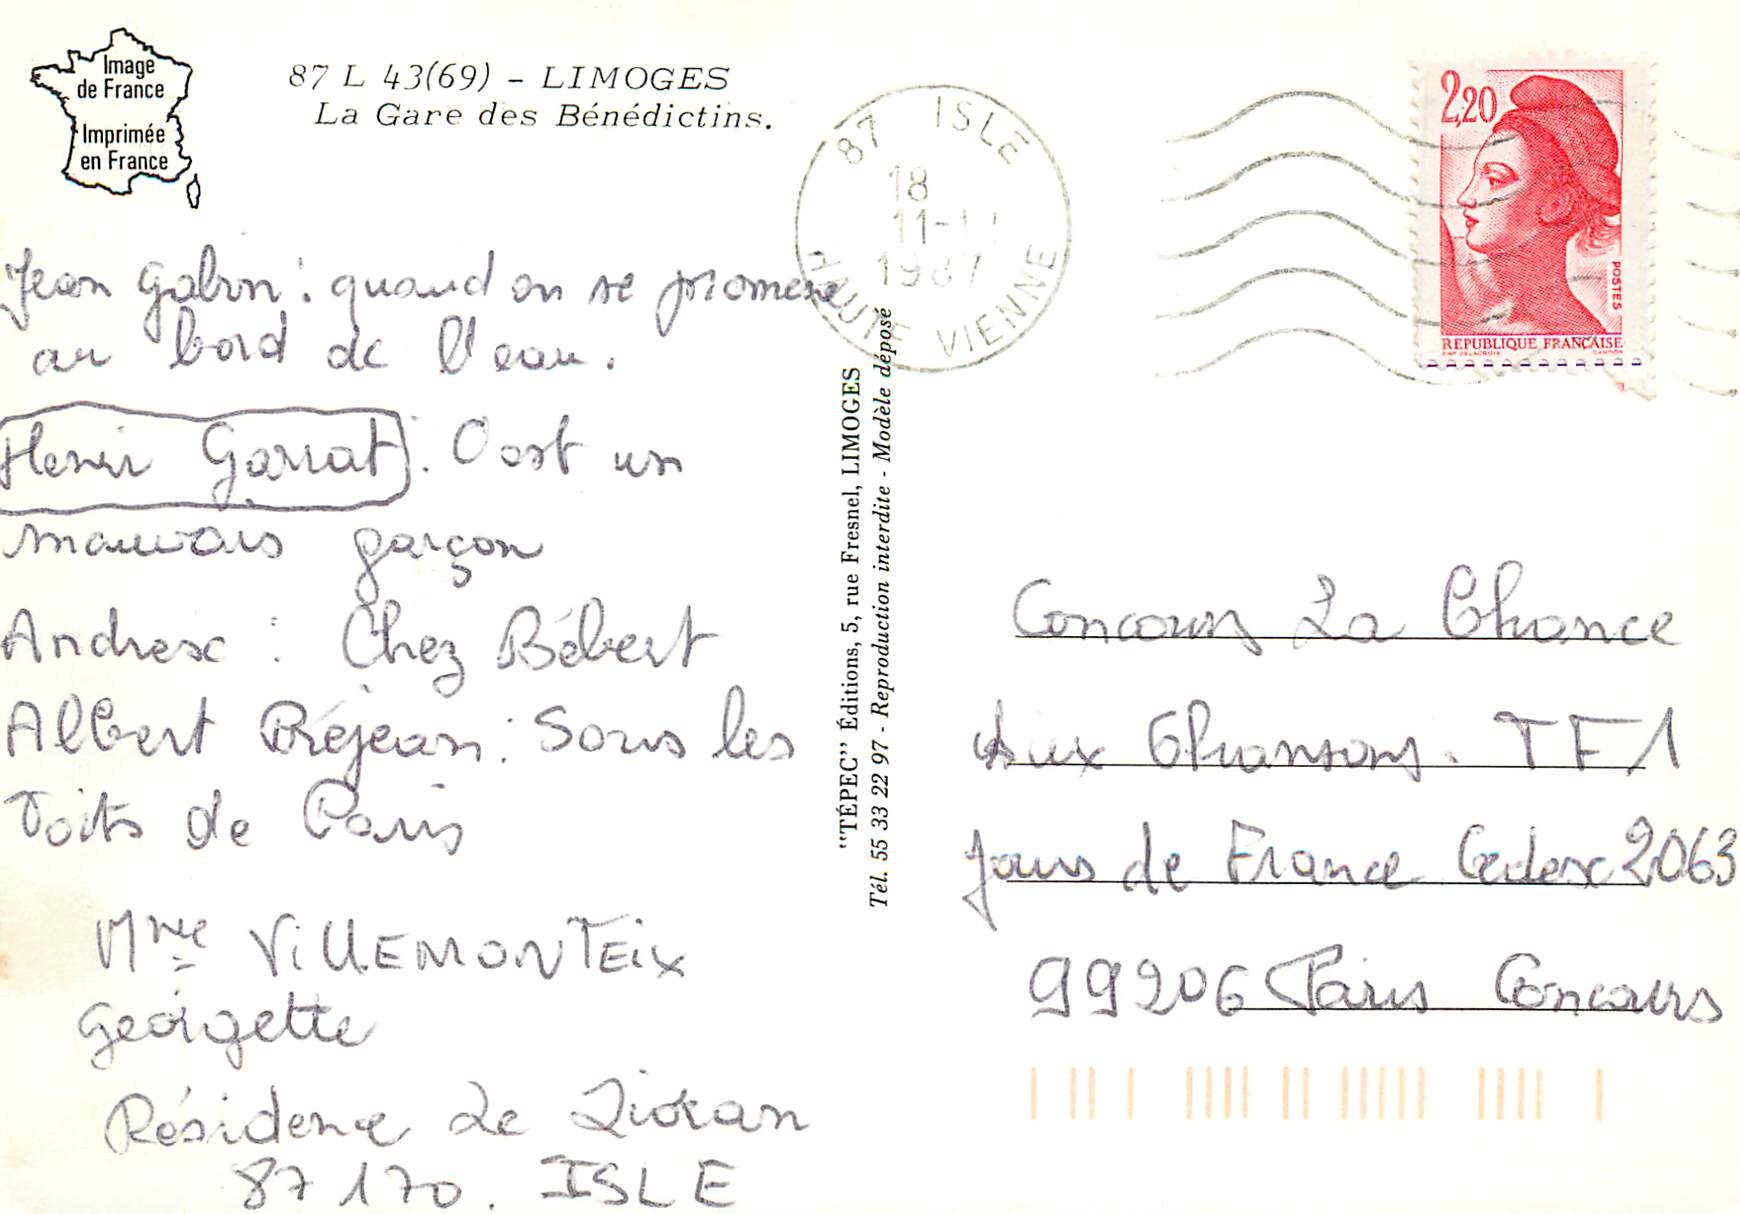 Image
de France
Imprimée
en France
87 L 43(69) - LIMOGES
La Gare des Bénédictins.
87 ISLE
18
11-1
1987
HAUTE VIENNE
2,20
POSTES
REPUBLIQUE FRANÇAISE
Jean Gabin : quand on se promene
au bord de l'eau.
Henri Garrat : C est un
mauvais garçon
Andrex : Chez Bébert
Albert Préjean : Sous les
Toits de Paris
Mme VILLEMONTEIX
Georgette
Résidence Le Lioran
87170. ISLE
"TÉPEC" Éditions, 5, rue Fresnel, LIMOGES
Tél. 55 33 22 97 - Reproduction interdite - Modèle déposé
Concours La Chance
Aux Chansons. TF1
Jours de France Cedex 2063
99206 Paris Concours